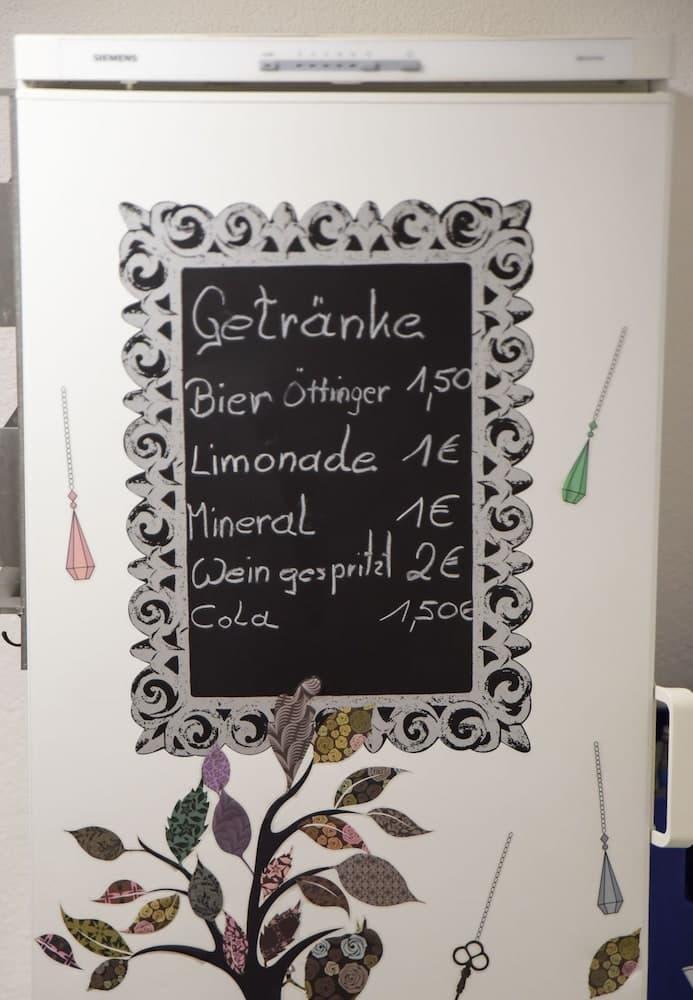 SIEMENS
Getränke
Bier Öttinger 1,50
Limonade 1€
Mineral 1€
Wein gespritzt 2€
Cola 1,50€